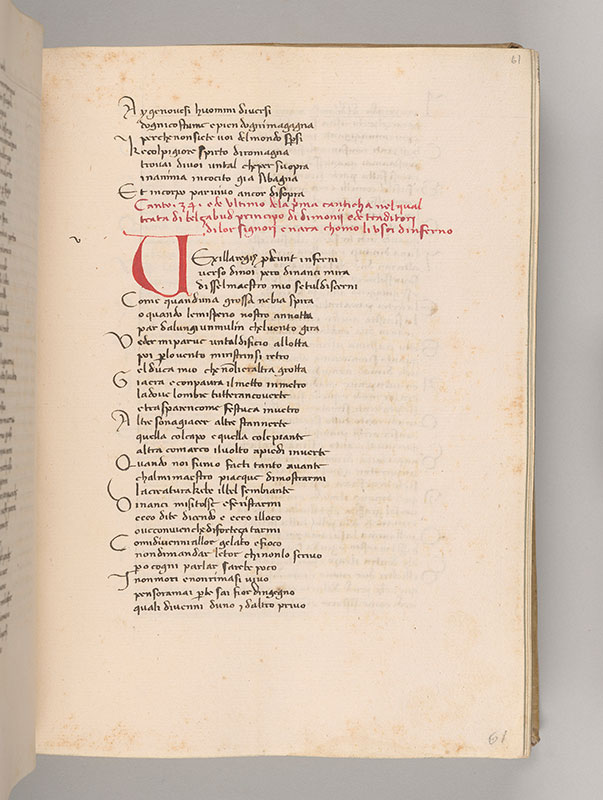 61
Ay genovesi huomini diversi
dognicostume epien dognimagagna
perche non siete voi del mondo spersi
Che colpigiore spirto diromagna
trovai divoi untal cheper suopra
inanima incocito gia sibagna
Et incorpo par vivo ancor disopra
Canto .34. ede ultimo dela prima canticha nel qual
trata di belzabud principo di dimonii ede traditori
dilor signori enara chomo li usci dinferno
v
VExilla regis prodeunt inferni
verso dinoi pero dinanci mira
disselmaestro mio setuldiscerni
Come quanduna grossa nebia spira
o quando lemisperio nostro annotta
par dalungi unmulin chelvento gira
Veder miparve untaldificio allotta
poi per lovento miristrinsi retro
elduca mio che noliera altra grotta
Gia era econpaura ilmetto inmetro
ladove lombre tutterancoverte
etrasparencome festuca invetro
Altre sonagiacer altre stannerte
quella colcapo equella colepiante
altra comarco ilvolto apiedi inverte
Quando noi fumo facti tanto avante
chalmimaestro piacque dimostrarmi
lacreatura chebe ilbel sembiante
Dinanci misitolse efe ristarmi
ecco dite dicendo e ecco illoco
ove convenche diforteça tarmi
Comidivenni allor gelato efioco
nondimandar letor chinonlo scrivo
pero cogni parlar sarebe poco
Inonmori enonrimasi vivo
pensoramai perte sai fior dingegno
quali divenni duno y daltro privo
61